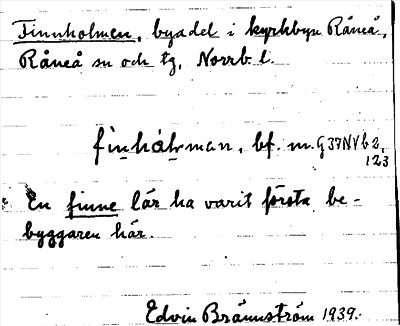 Finnholmen, byadel i kyrkbyn Råneå,
Råneå sn och tg, Norrb. l.
finhålman, bf. m. G 37NVb 2,
123
En finne lär ha varit första be-
byggaren här.
Edvin Brännström 1939.